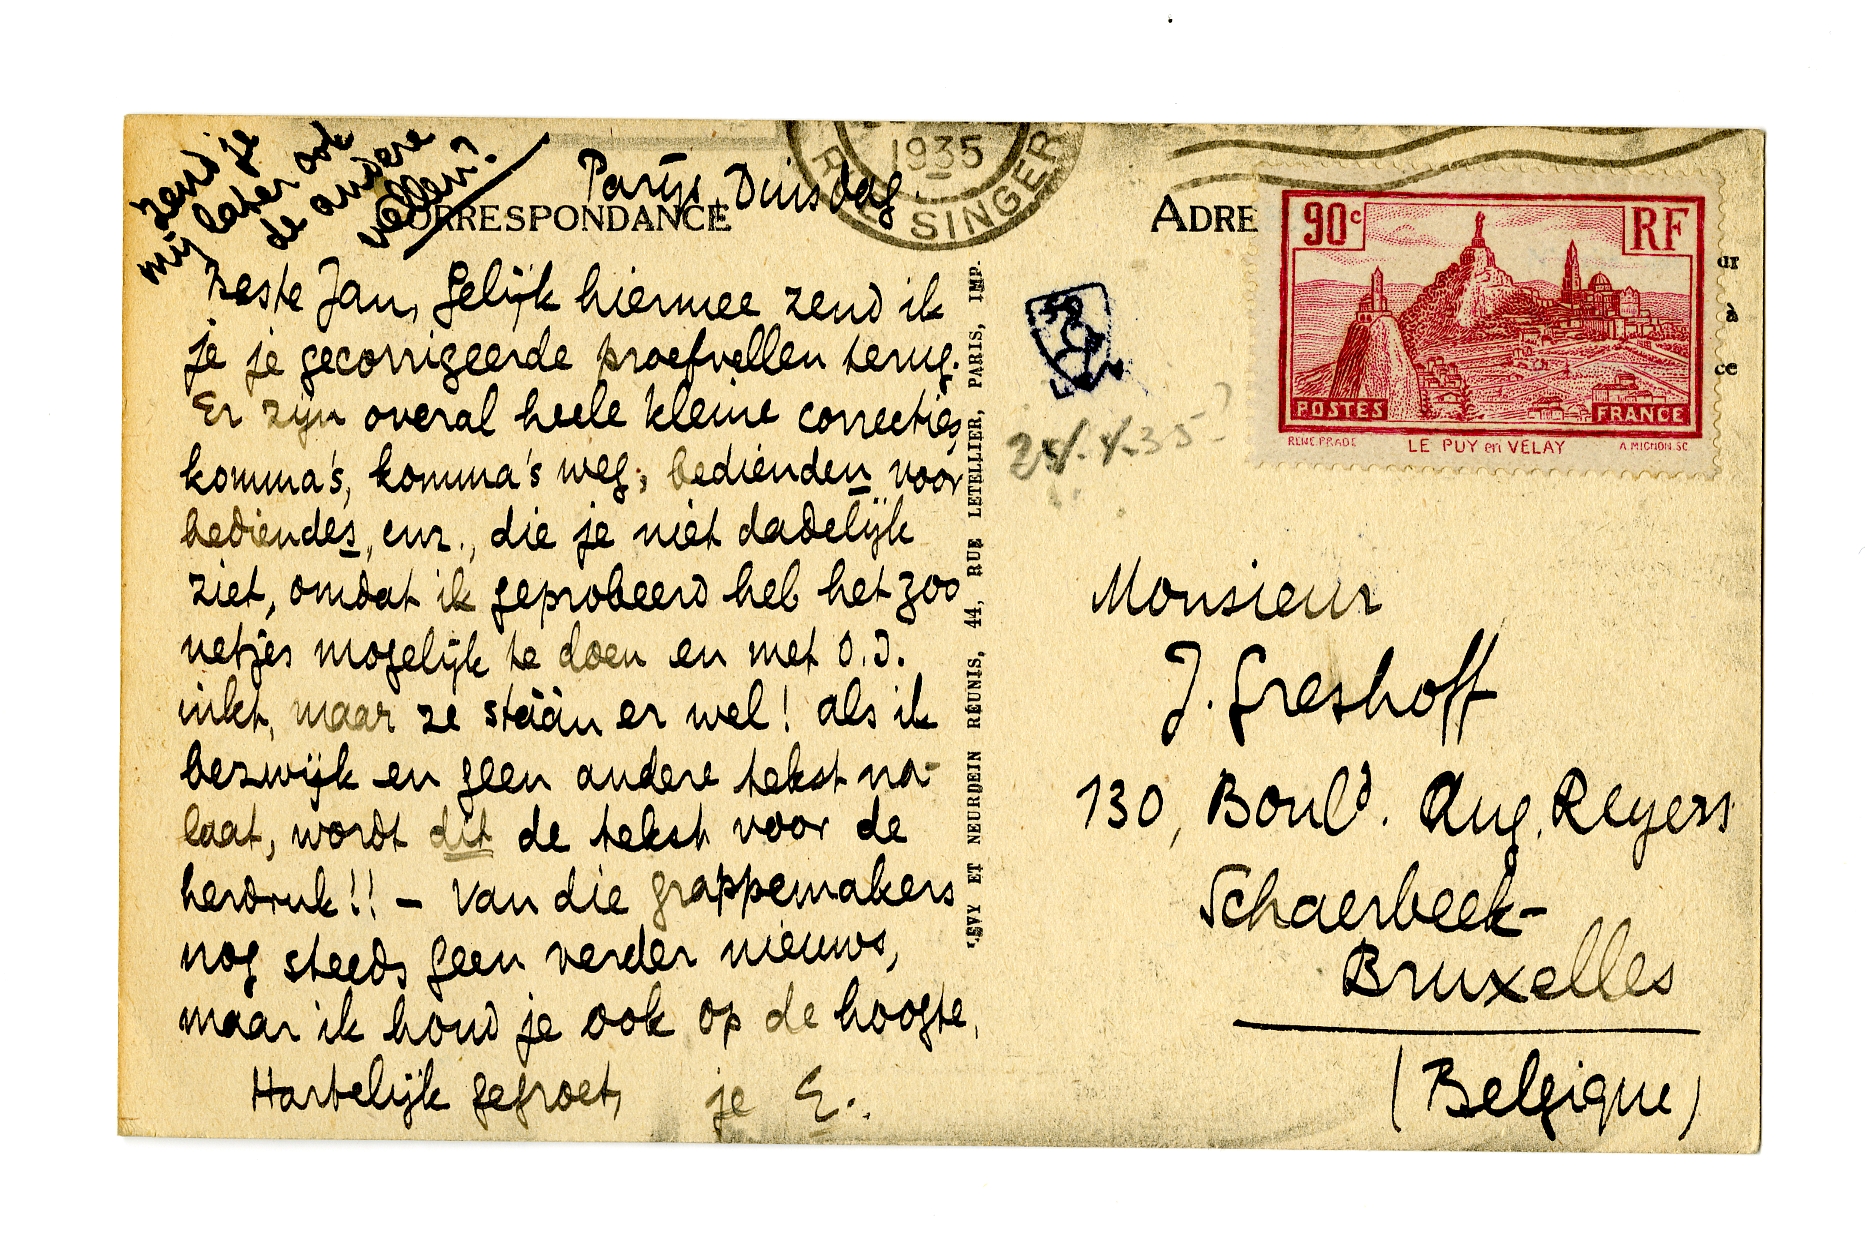 zend je
mij later ook
de andere
vellen?
Parijs, Duisdag.
CORRESPONDANCE
Beste Jan, Gelijk hiermee zend ik
je je gecorrigeerde proefvellen terug.
Er zijn overal heele kleine correcties,
komma's, komma's weg; bedienden voor
bediendes, enz., die je niet dadelijk
ziet, omdat ik geprobeerd heb het zoo
netjes mogelijk te doen en met O.I.
inkt, maar ze stáán er wel! als ik
bezwijk en geen andere tekst na-
laat, wordt dit de tekst voor de
herdruk!! - Van die grappemakers
nog steeds geen verder nieuws,
maar ik houd je ook op de hoogte,
Hartelijk gegroet, je E.
LEVY ET NEURDEIN RÉUNIS, 44, RUE LETELLIER, PARIS, IMP.
1935
SINGER
ADRE
90c
RF
POSTES
FRANCE
RENÉ.PRADE
LE PUY en VELAY
A MIGNON.SC
ur
à
ce
Monsieur
J. Greshoff
130, Bould. Aug. Reyers
Schaerbeek-
Bruxelles
(Belgique)